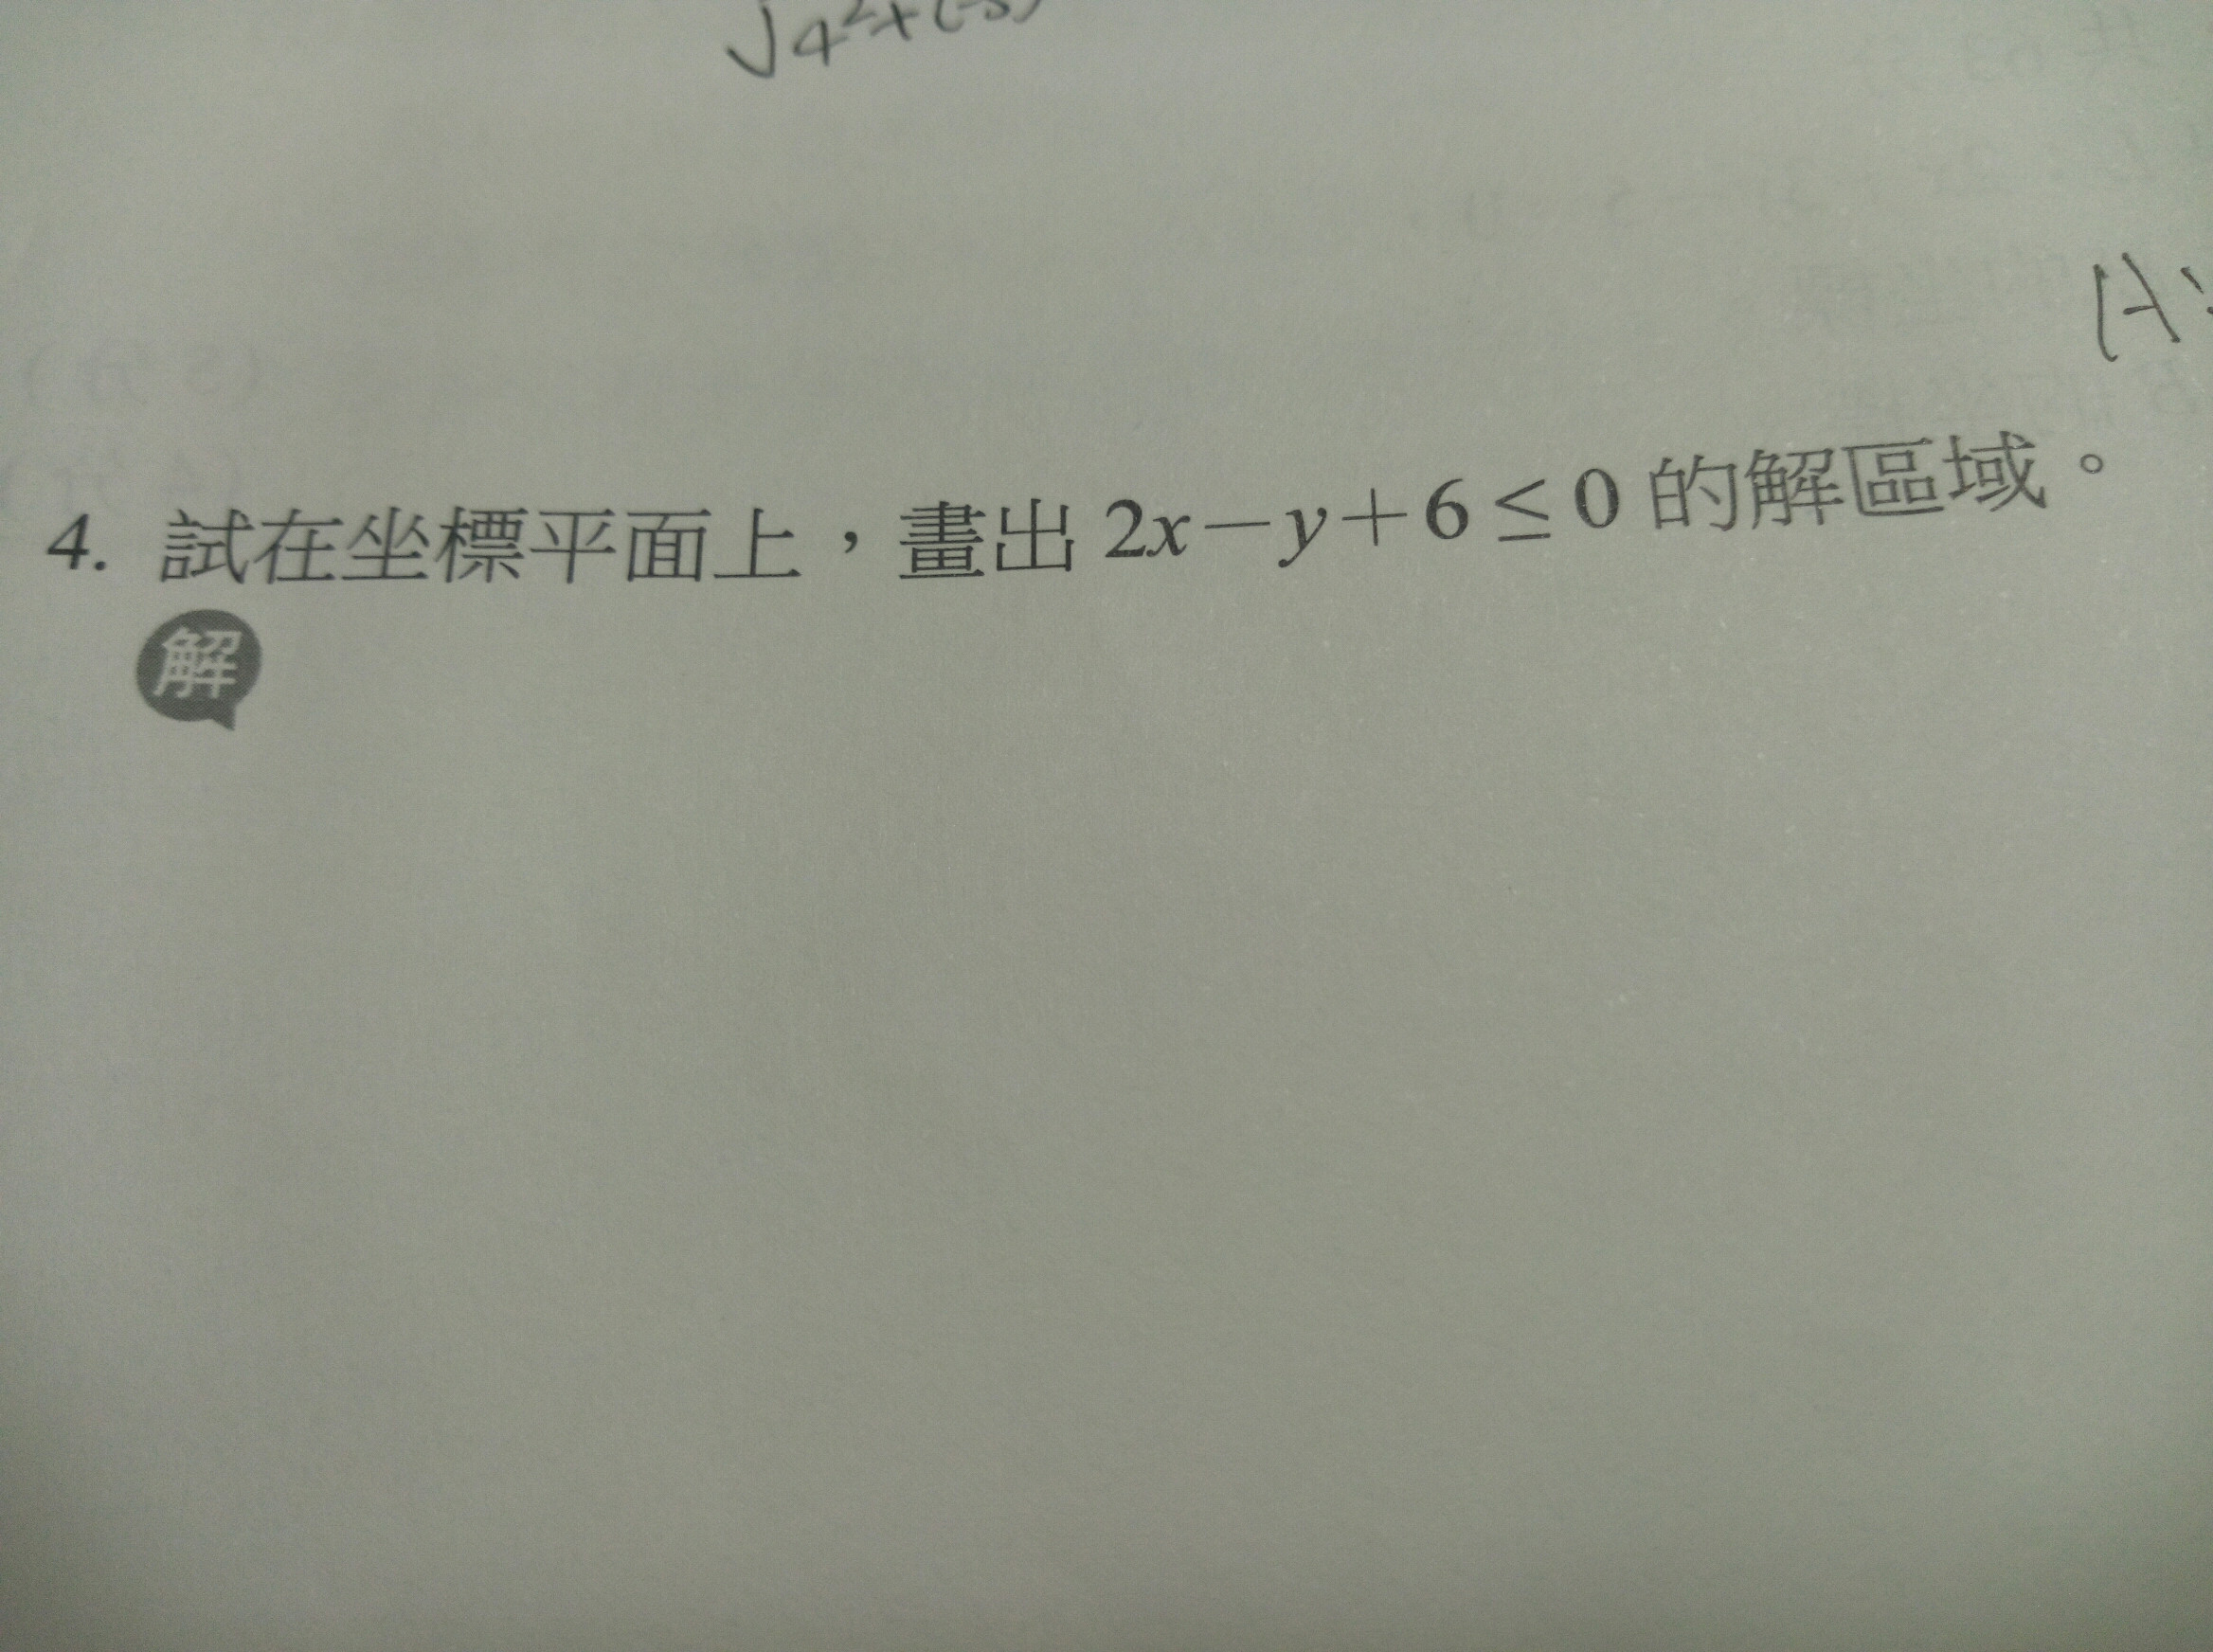 4. 試在坐標平面上，畫出 2x－y＋6 ≤ 0 的解區域。
解